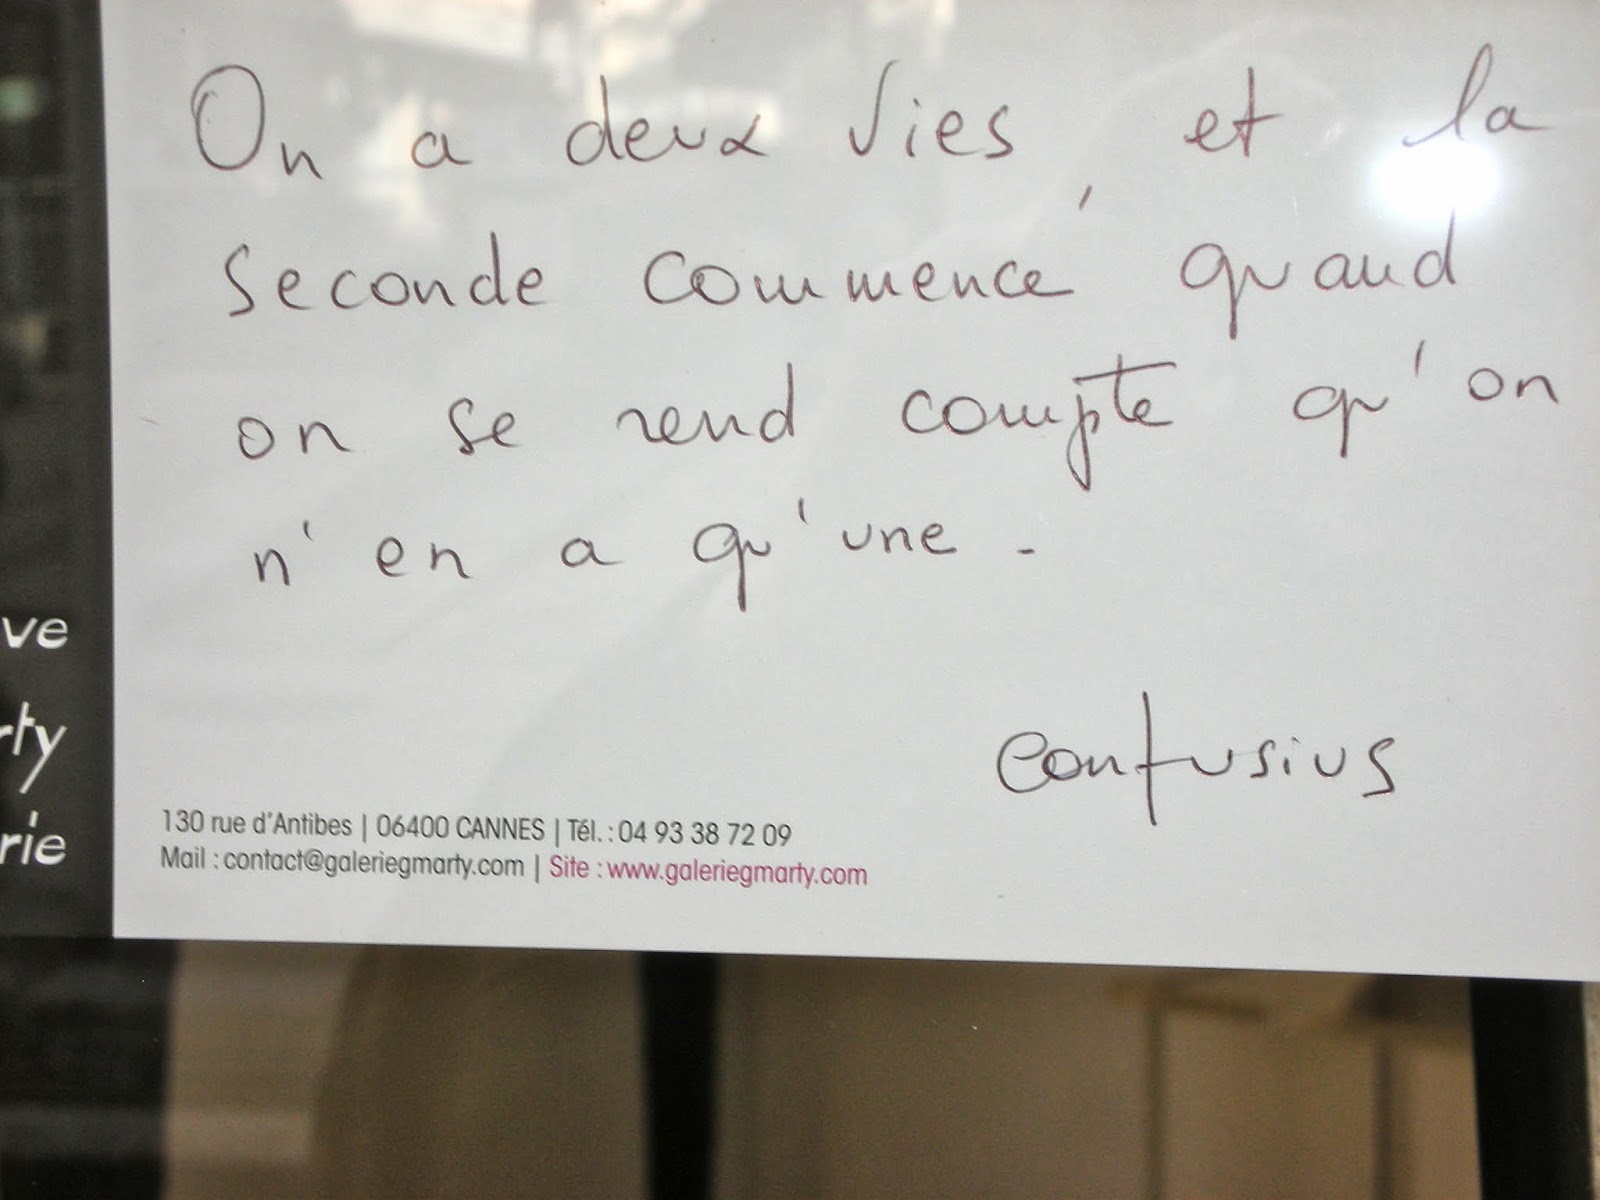 On a deux vies et la
seconde commence, quand
on se rend compte qu'on
n'en a qu'une.
confusius
130 rue d'Antibes | 06400 CANNES | Tél. : 04 93 38 72 09
Mail : contact@galeriegmarty.com | Site : www.galeriegmarty.com
ve
rty
rie